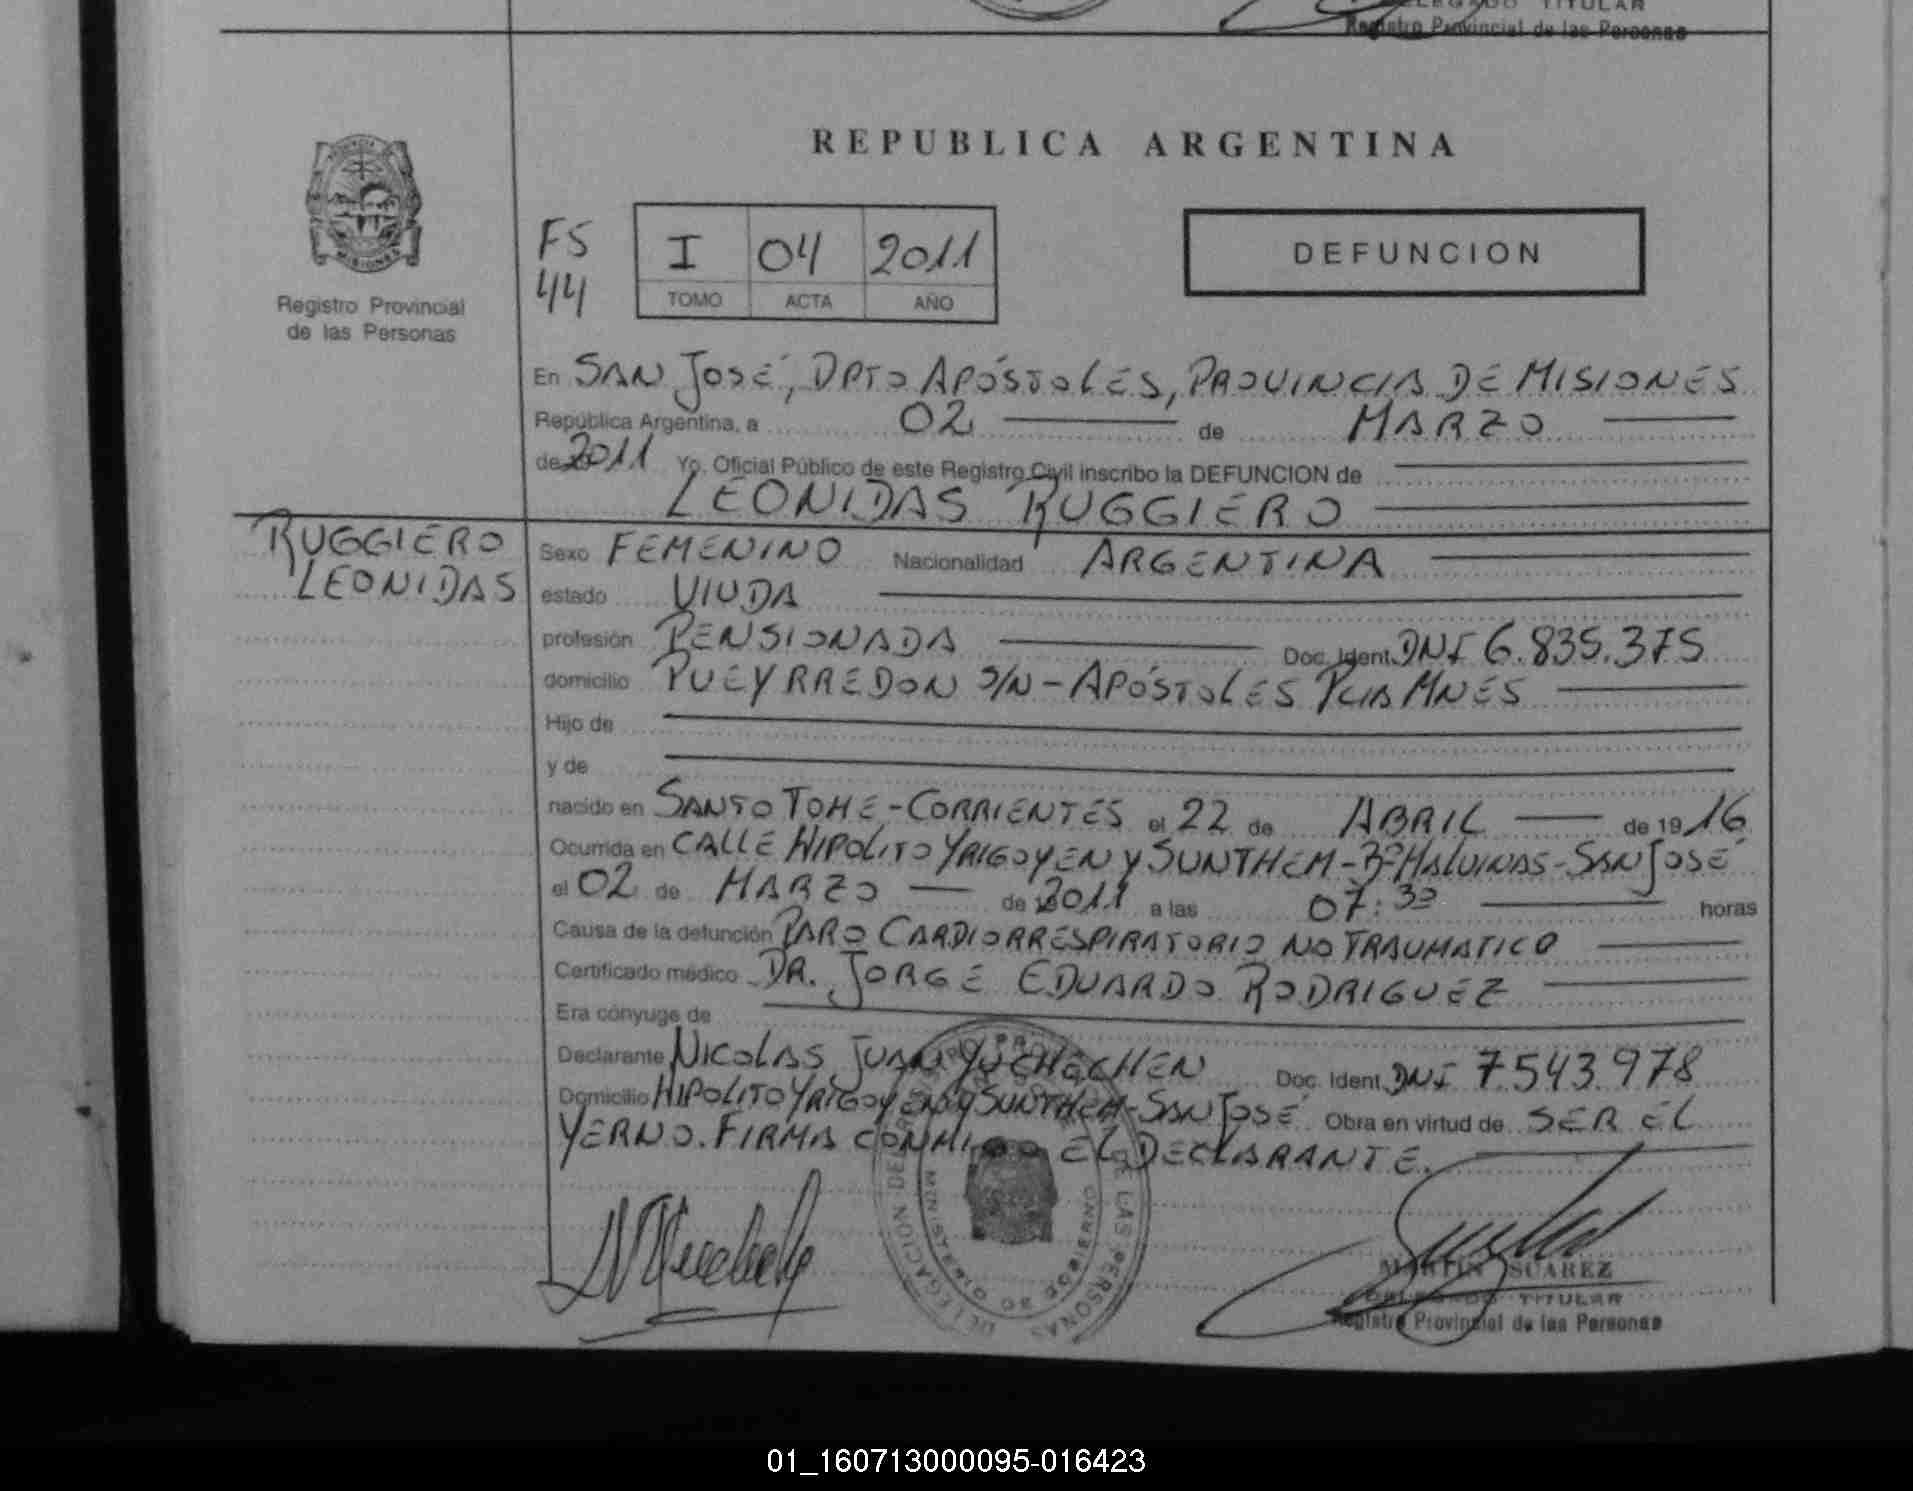 DELEGADO TITULAR
Registro Provincial de las Personas
REPUBLICA ARGENTINA
MISIONES
Registro Provincial
de las Personas
FS
44
I 04 2011
TOMO ACTA AÑO
DEFUNCION
En SAN JOSÉ, DPTO APÓSTOLES, PROVINCIA DE MISIONES
República Argentina, a 02 de MARZO
de 2011 Yo, Oficial Público de este Registro Civil inscribo la DEFUNCION de
LEONIDAS RUGGIERO
RUGGIERO
LEONIDAS
Sexo FEMENINO Nacionalidad ARGENTINA
estado VIUDA
profesión PENSIONADA Doc. Ident. DNI 6.835.375
domicilio PUEYRREDON S/N - APÓSTOLES PCIA MNES
Hijo de
y de
nacido en SANTO TOME - CORRIENTES el 22 de ABRIL de 1916
Ocurrida en CALLE HIPOLITO YRIGOYEN Y SUNTHEM - Bº MALVINAS - SAN JOSÉ
el 02 de MARZO de 2011 a las 07:30 horas
Causa de la defunción PARO CARDIORRESPIRATORIO NO TRAUMATICO
Certificado médico DR. JORGE EDUARDO RODRIGUEZ
Era cónyuge de
Declarante NICOLAS JUAN YUCHECHEN Doc. Ident. DNI 7.543.978
Domicilio HIPOLITO YRIGOYEN Y SUNTHEM - SAN JOSÉ Obra en virtud de SER EL
YERNO. FIRMA CONMIGO EL DECLARANTE.
MARTIN SUAREZ
DELEGADO TITULAR
Registro Provincial de las Personas
01_160713000095-016423